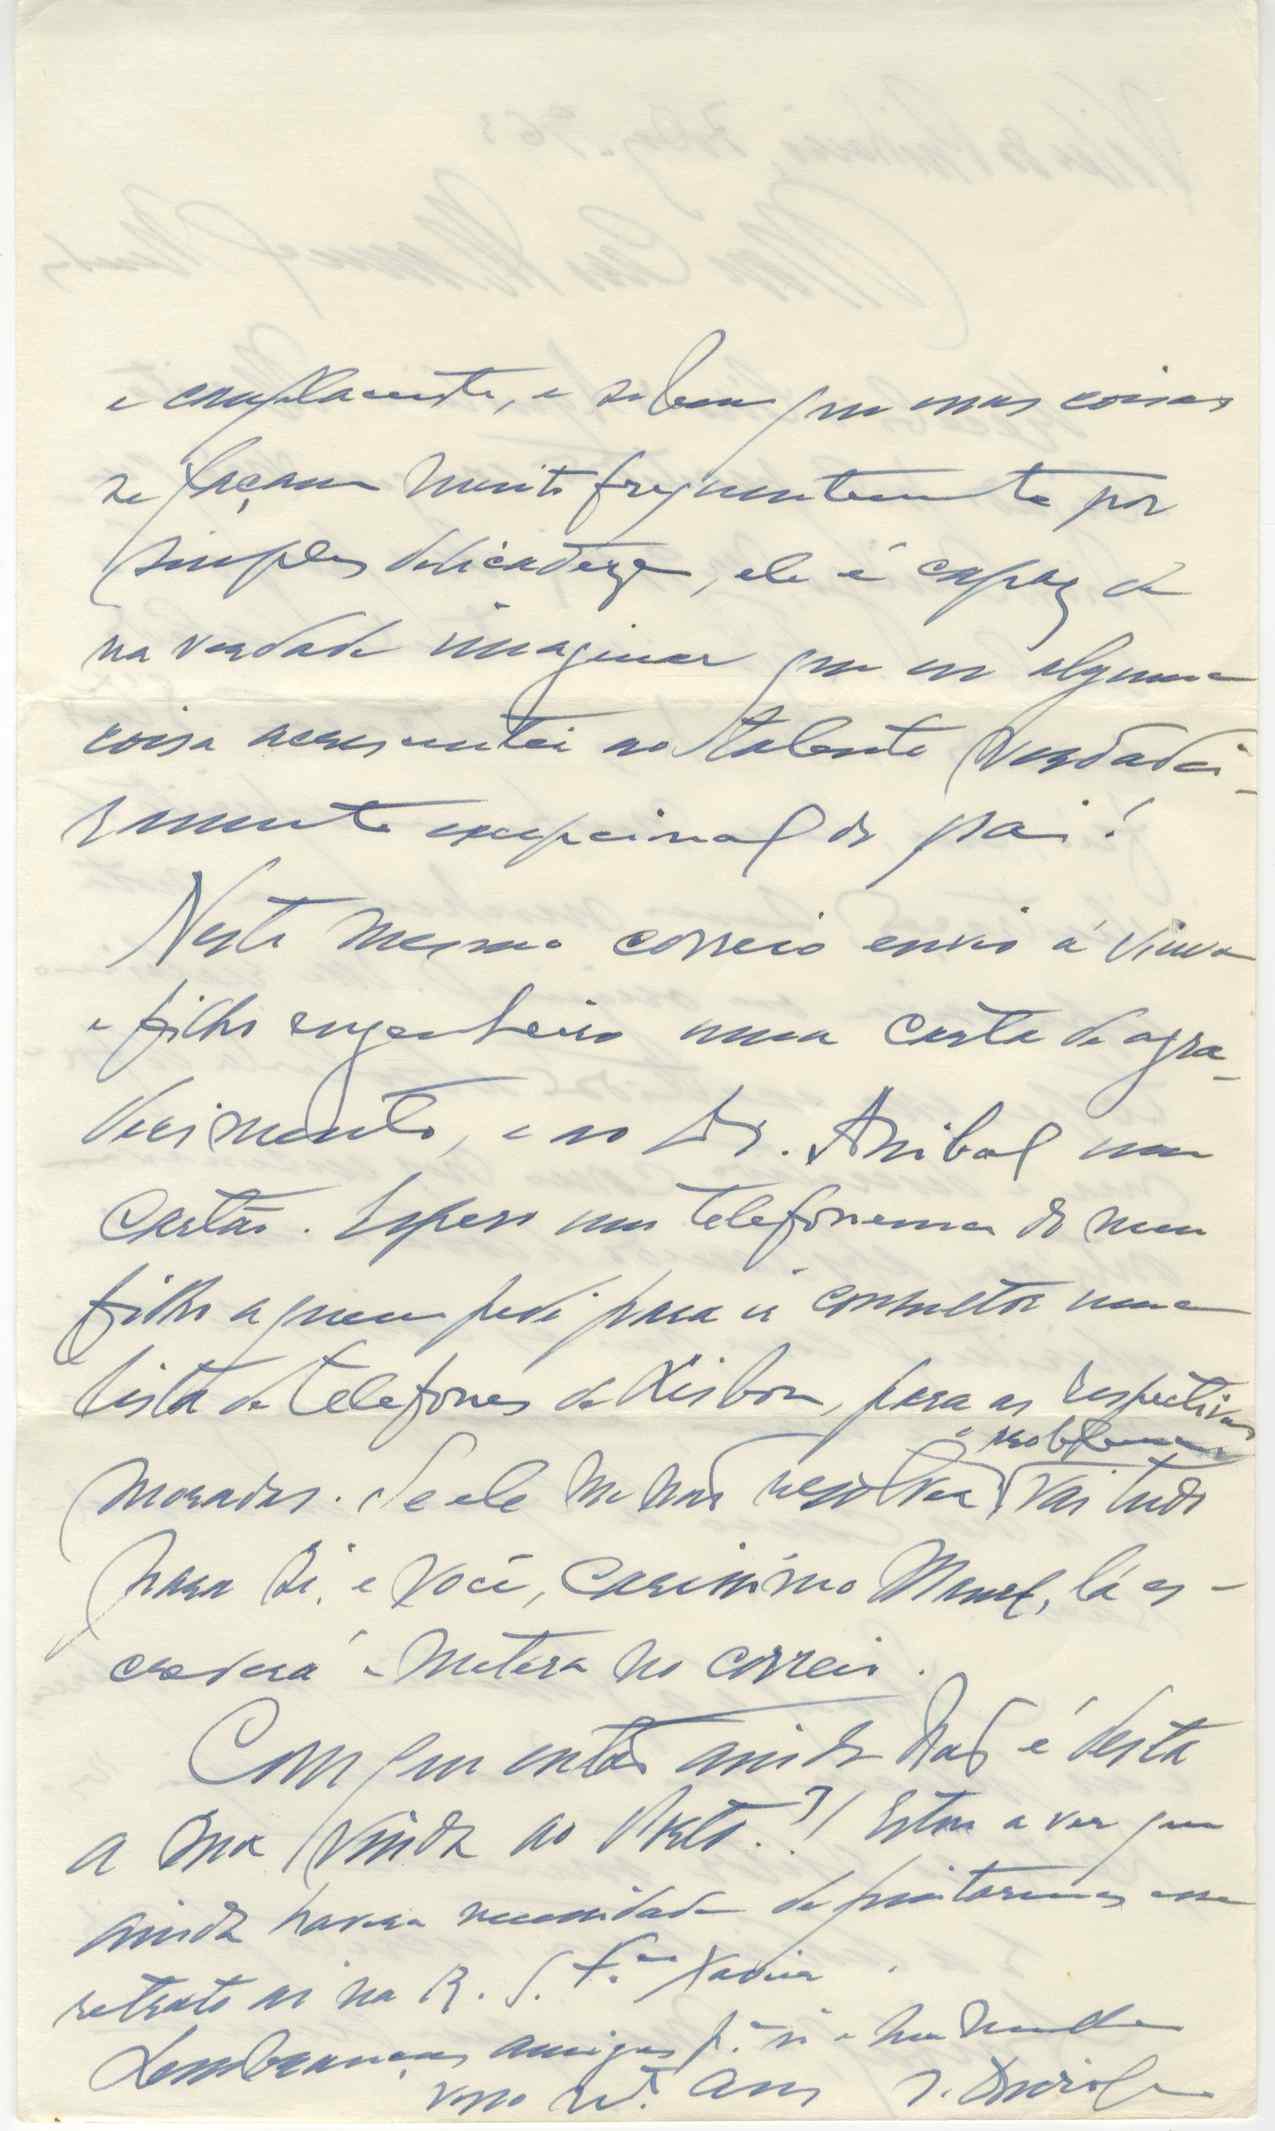 e complacente, e se bem que essas coisas
se façam muito frequentemente por
simples delicadeza, ele é capaz de
na verdade imaginar que eu alguma
coisa acrescentei ao talento verdadei-
ramente excepcional do pai!
Neste mesmo correio envio á viuva
e filho engenheiro uma carta de agra-
decimento, e ao Dr. Anibal um
cartão. Espero um telefonema do meu
filho a quem pedi para ir consultar uma
lista de telefones de Lisboa, para as respectivas
moradas. Se ele me não resolver o problema vai tudo
para si, e você, carissimo Manel, lá es-
creverá e meterá no correio.
Com que então ainda não é desta
a sua vinda ao Porto?! Estou a ver que
ainda haverá necessidade de pintarmos esse
retrato aí na R. S. F.co Xavier.
Lembranças amigas p.ª si e
vosso